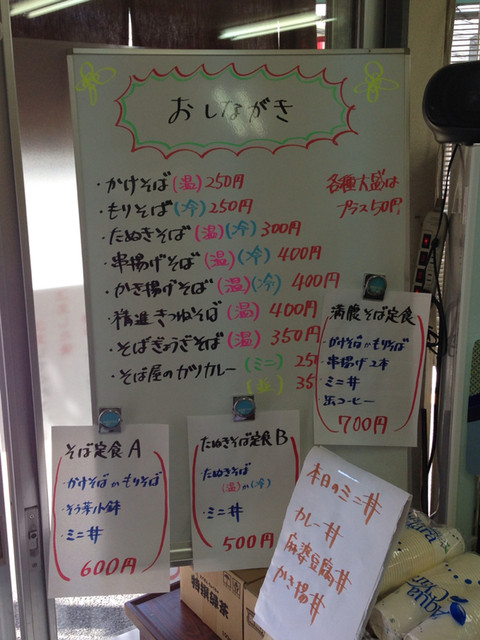 おしながき
・かけそば(温)250円
・もりそば(冷)250円
・たぬきそば(温)(冷)300円
・串揚げそば(温)(冷)400円
・かき揚げそば(温)(冷)400円
・精進きつねそば(温)400円
・そばぎょうざそば(温)350円
・そば屋のガツカレー(ミニ)250
35
各種大盛は
プラス50円
満腹そば定食
・かけそばorもりそば
・串揚げ2本
・ミニ丼
・缶コーヒー
700円
そば定食A
・かけそばorもりそば
・そう菜小鉢
・ミニ丼
600円
たぬきそば定食B
・たぬきそば
(温)or(冷)
・ミニ丼
500円
本日のミニ丼
カレー丼
麻婆豆腐丼
かき揚丼
Aqua